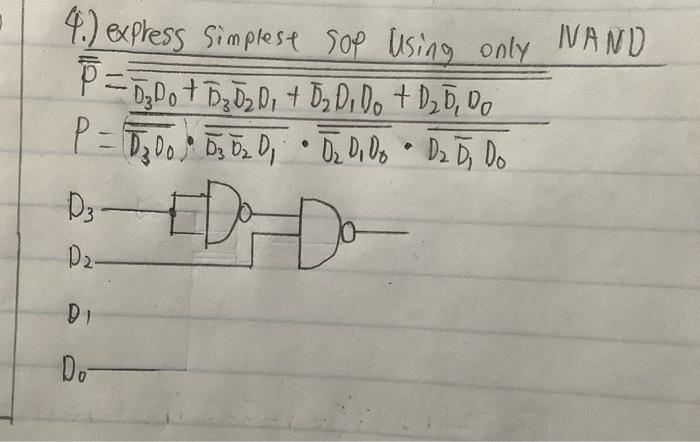 4.) express simplest SOP Using only NAND
P̿ = D̅₃D₀ + D̅₃D̅₂D₁ + D̅₂D₁D₀ + D₂D̅₁D₀
P = (D̅₃D₀) • D̅₃D̅₂D₁ • D̅₂D₁D₀ • D₂D̅₁D₀
D₃
D₂
D₁
D₀